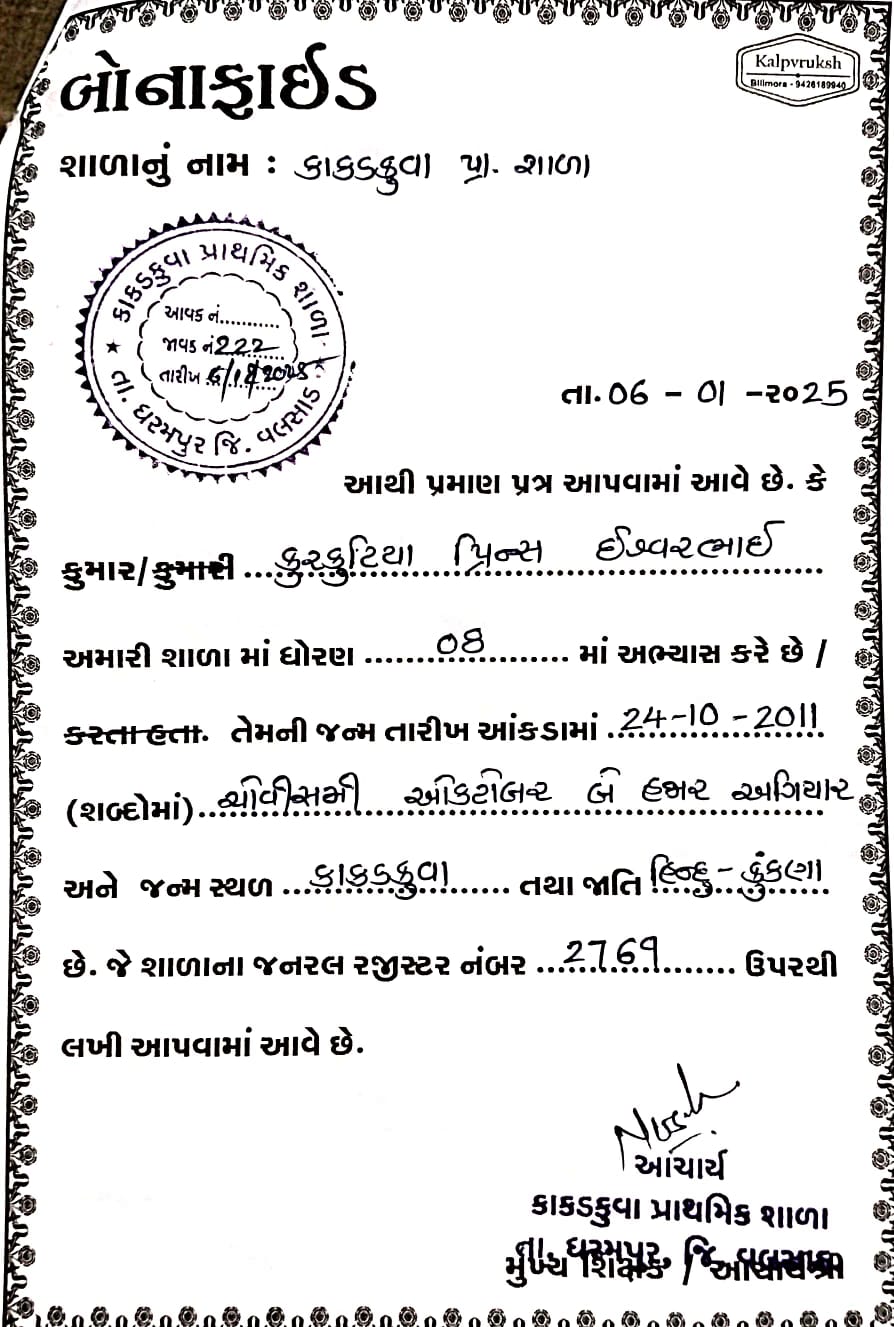 બોનાફાઈડ
Kalpvruksh
Billmora - 9426189940
શાળાનું નામ : કાકડકુવા પ્રા. શાળા
કાકડકુવા પ્રાથમિક શાળા
આવક નં...........
જાવક નં 222
તારીખ
તા. ધરમપુર જિ. વલસાડ
તા. 06 - 01 - ૨૦25
આથી પ્રમાણ પત્ર આપવામાં આવે છે. કે
કુમાર/કુમારી કુરકુટિયા પ્રિન્સ ઈશ્વરભાઈ
અમારી શાળા માં ધોરણ ....... 08 ....... માં અભ્યાસ કરે છે /
કરતા હતા. તેમની જન્મ તારીખ આંકડામાં 24-10-2011
(શબ્દોમાં) ચોવીસમી ઓકટોબર બે હજાર અગિયાર
અને જન્મ સ્થળ કાકડકુવા તથા જાતિ હિન્દુ - કુંકણા
છે. જે શાળાના જનરલ રજીસ્ટર નંબર 2769 ઉપરથી
લખી આપવામાં આવે છે.
આચાર્ય
કાકડકુવા પ્રાથમિક શાળા
તા. ધરમપુર, જિ. વલસાડ
મુખ્ય શિક્ષક / આચાર્યશ્રી